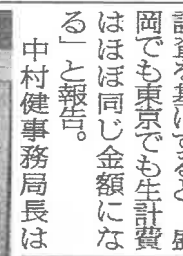 岡でも東京でも生計費
はほぼ同じ金額にな
る」と報告。
中村健事務局長は